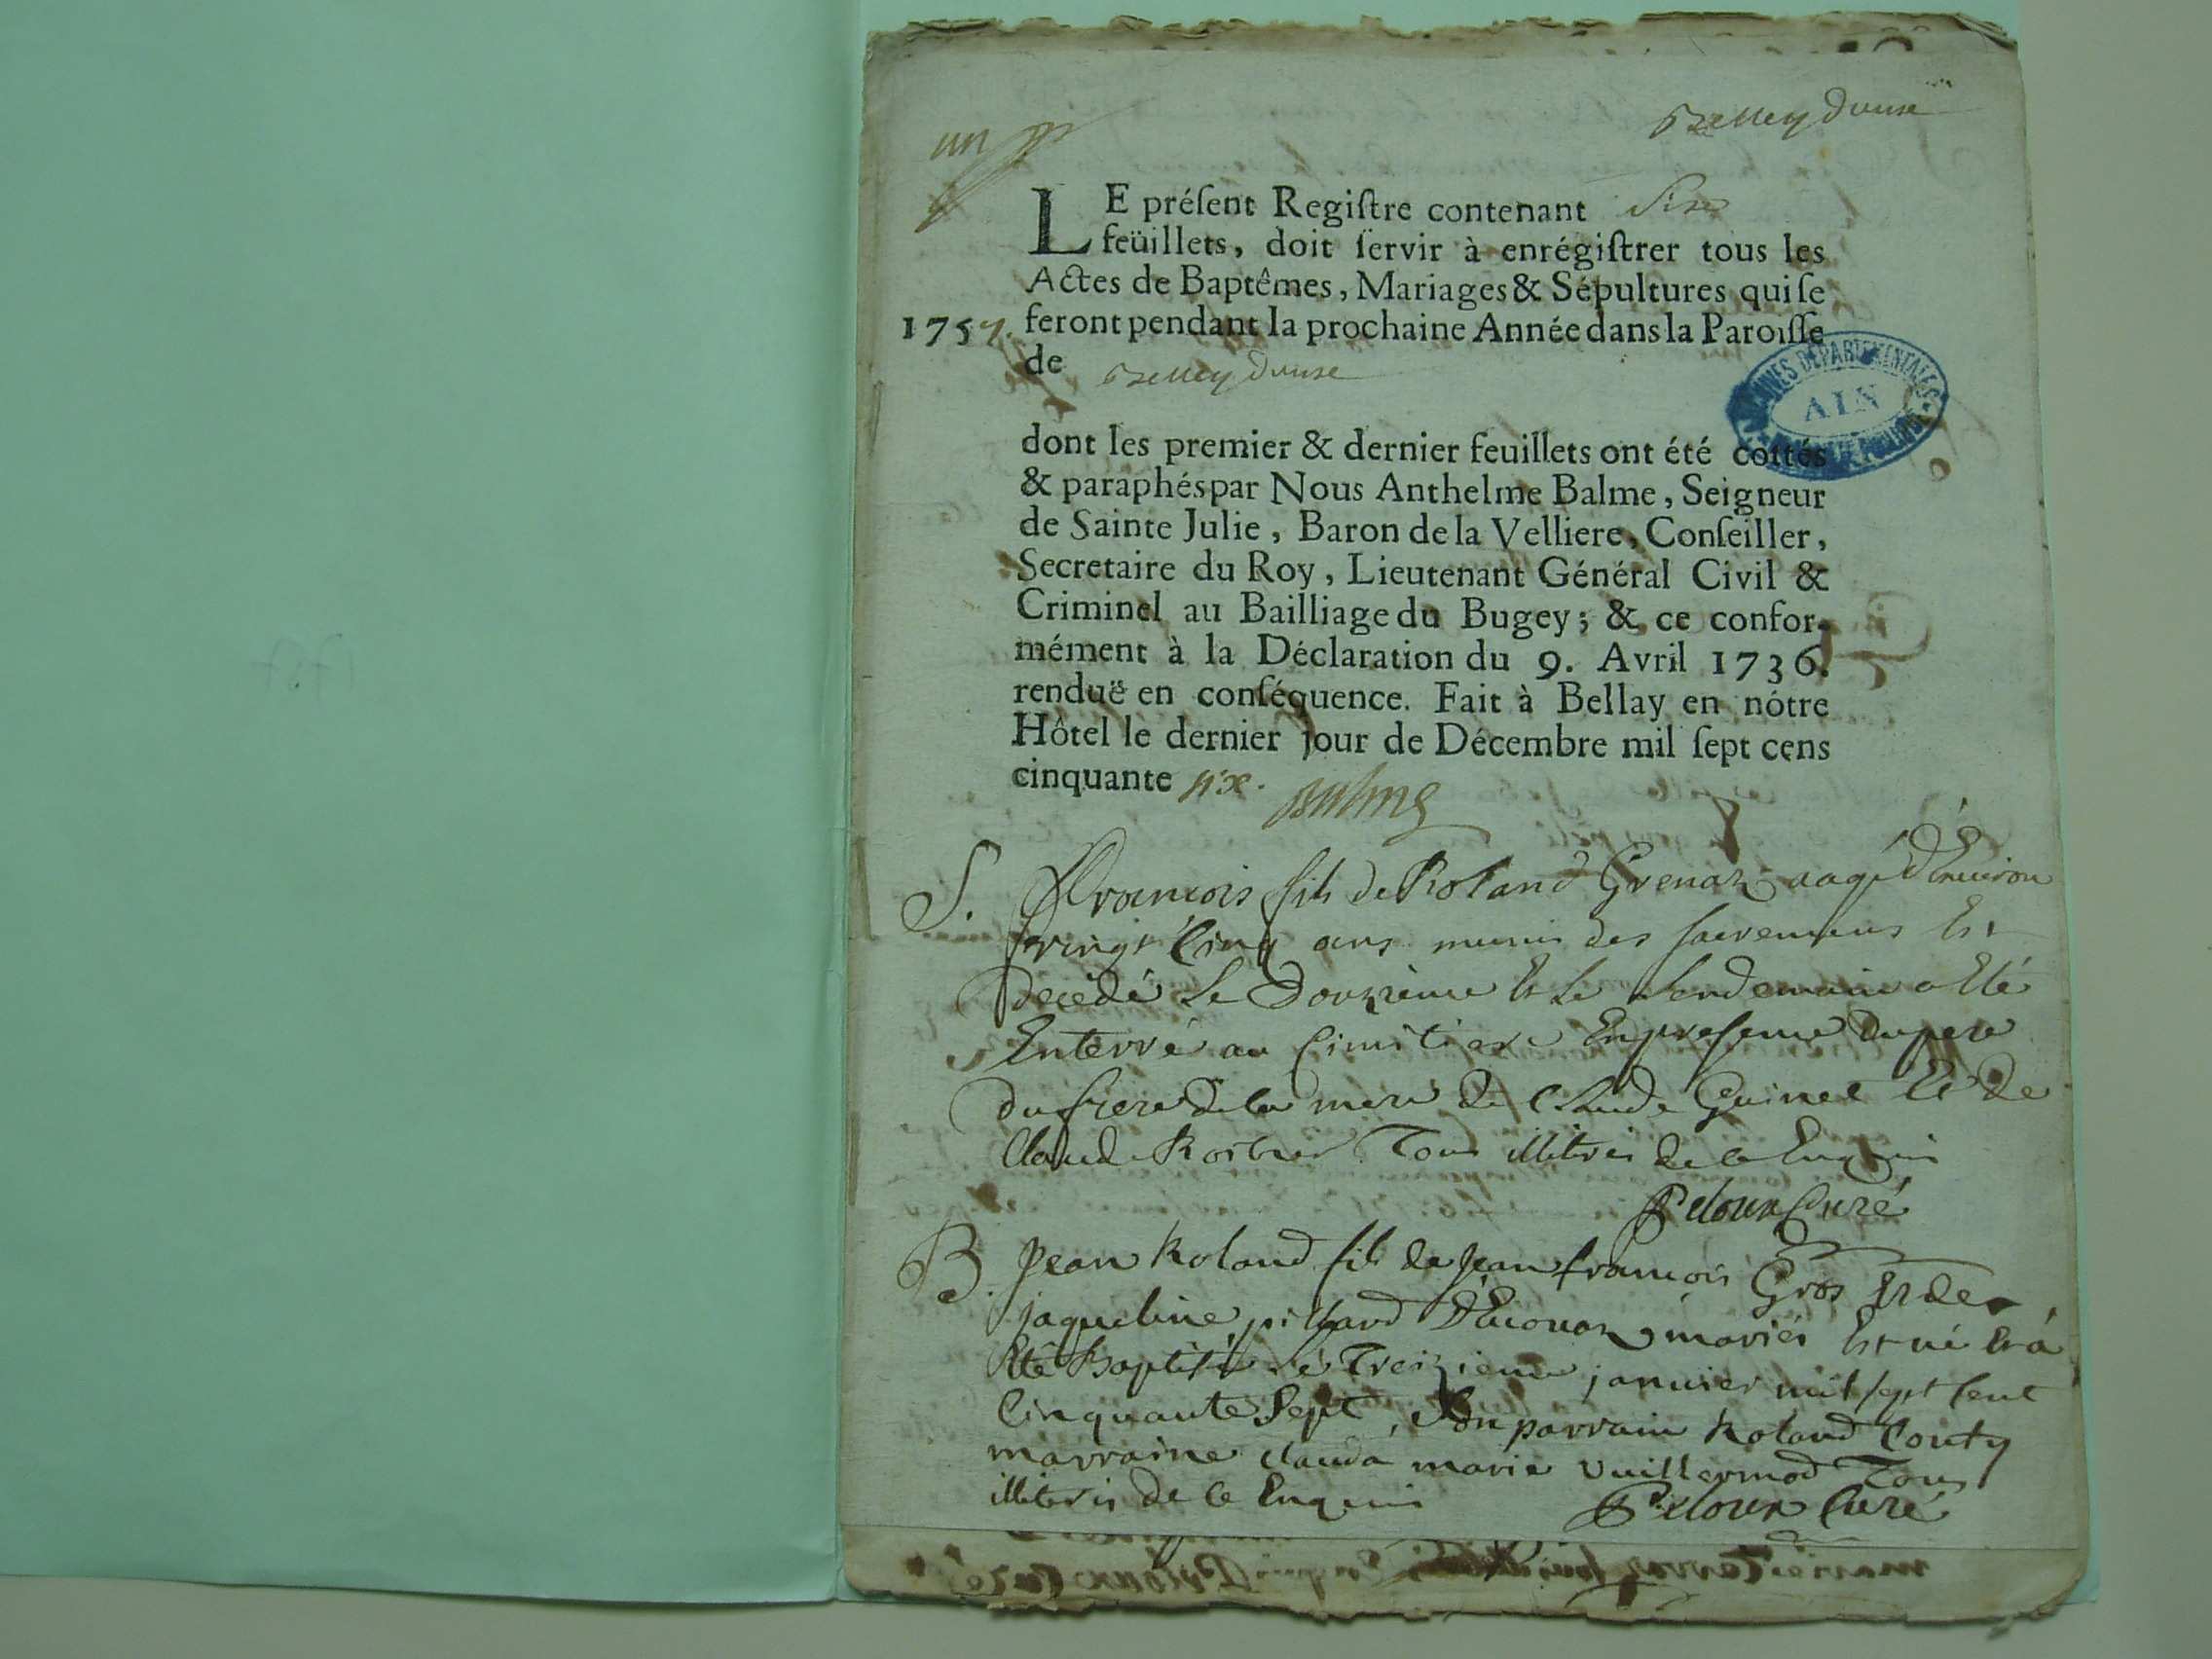 un
Bzelley dunse
LE préſent Regiſtre contenant Six
feüillets, doit ſervir à enrégiſtrer tous les
Actes de Baptêmes, Mariages & Sépultures qui ſe
1757. feront pendant la prochaine Année dans la Paroiſſe
de
ARCHIVES DÉPARTEMENTALES
AIN
dont les premier & dernier feuillets ont été cottés
& paraphés par Nous Anthelme Balme, Seigneur
de Sainte Julie, Baron de la Velliere, Conſeiller,
Secretaire du Roy, Lieutenant Général Civil &
Criminel au Bailliage du Bugey; & ce confor-
mément à la Déclaration du 9. Avril 1736.
renduë en conſéquence. Fait à Bellay en nôtre
Hôtel le dernier jour de Décembre mil ſept cens
cinquante six. Balme
S. François fils de Roland Grenaz aagé d'Environ
vingt Cinq ans munis des sacremens Est
decedé Le Douzième Et Le Lendemain a Eté
Enterré au Cimitiere En presence du pere
du frere de la mere de Claude Guinet Et de
Claude Tous illiterés de ce Enquis
Peloux Curé
B. Jean Roland fils de Jean françois Gros Et de
jaqueline pillard mariés Est né Et a
Eté Baptisé Le Treizieme janvier mil sept Cent
Cinquante Sept, Son parrain Roland Couty
marraine clauda marie Vuillermod Tous
illiterés de ce Enquis Peloux Curé